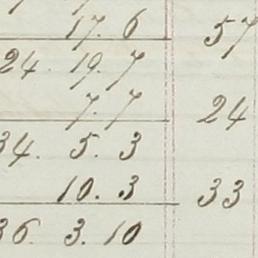 17. 6 57
24. 19. 7
7. 7 24
34. 5. 3
10. 3 33
36. 3. 10